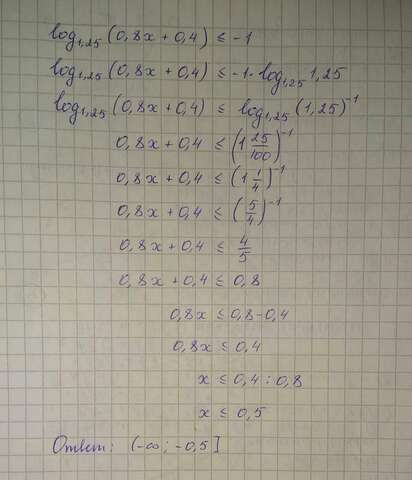 log₁,₂₅ (0,8x + 0,4) ≤ -1
log₁,₂₅ (0,8x + 0,4) ≤ -1 · log₁,₂₅ 1,25
log₁,₂₅ (0,8x + 0,4) ≤ log₁,₂₅ (1,25)⁻¹
0,8x + 0,4 ≤ (1 25/100)⁻¹
0,8x + 0,4 ≤ (1 1/4)⁻¹
0,8x + 0,4 ≤ (5/4)⁻¹
0,8x + 0,4 ≤ 4/5
0,8x + 0,4 ≤ 0,8
0,8x ≤ 0,8-0,4
0,8x ≤ 0,4
x ≤ 0,4 : 0,8
x ≤ 0,5
Ответ: (-∞; -0,5]